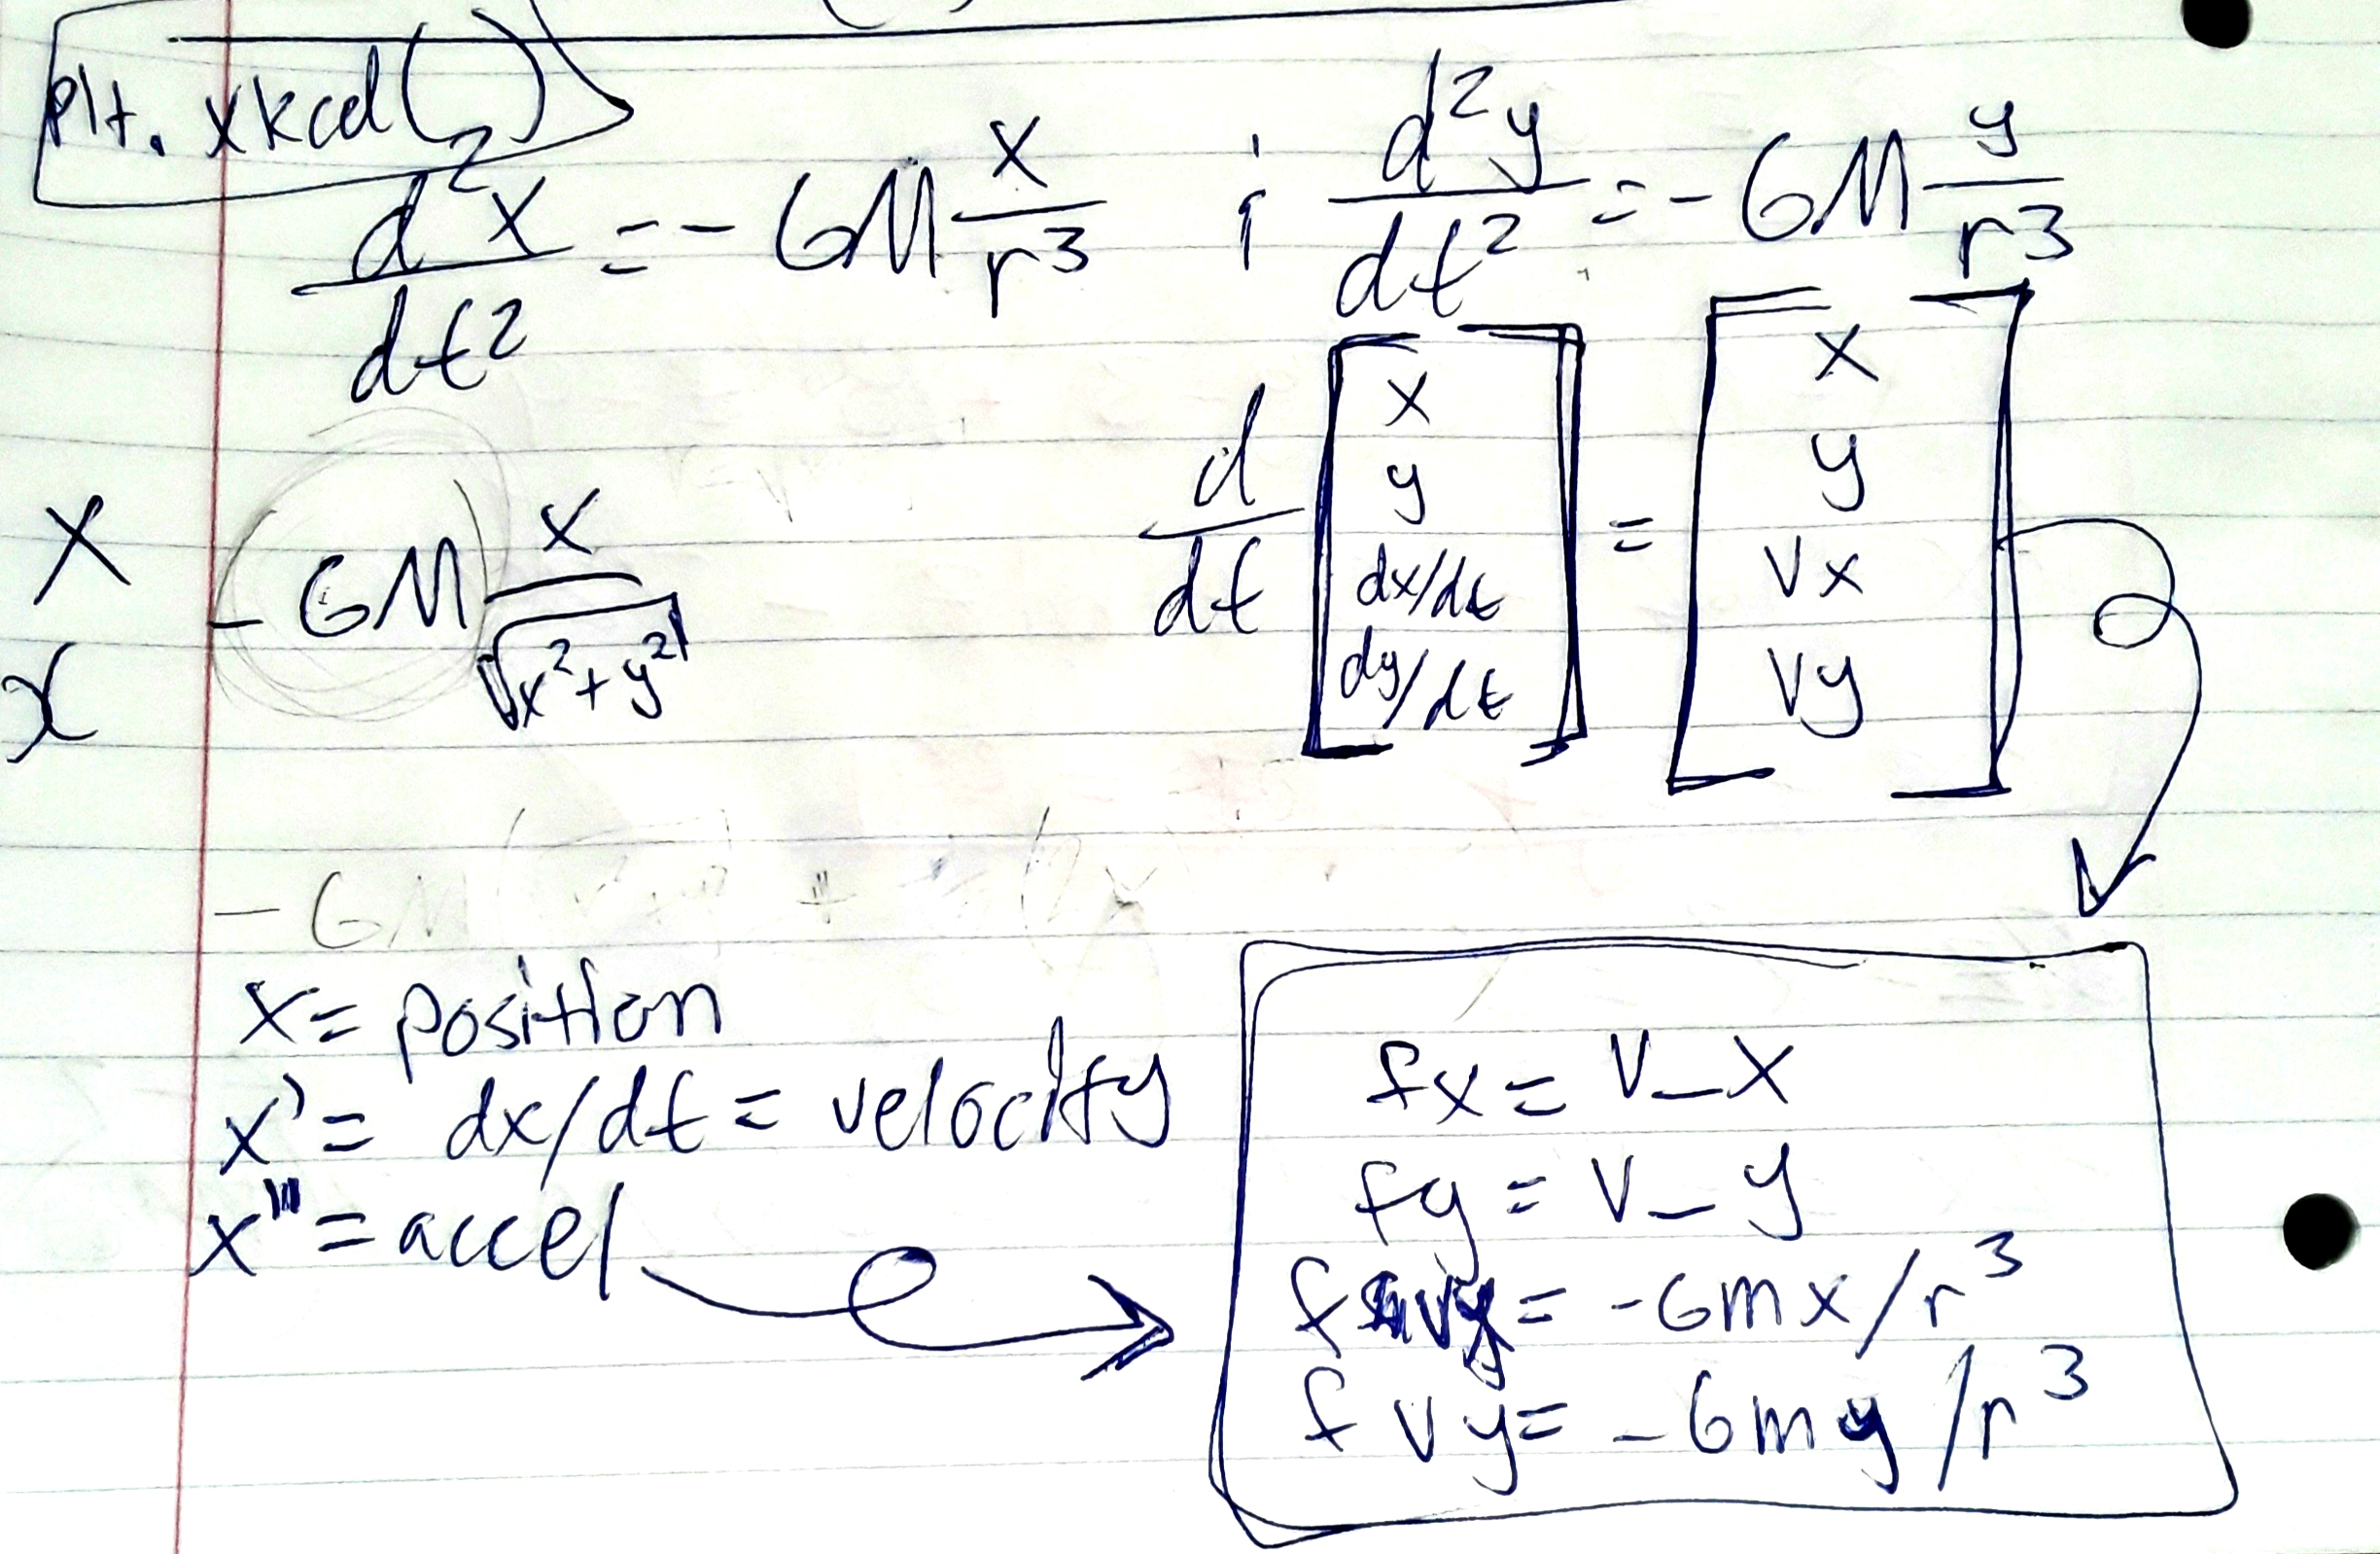 plt. xkcd()
d²x/dt² = - GM x/r³ ; d²y/dt² = - GM y/r³
d/dt [x y dx/dt dy/dt] = [x y vx vy]
x
- GM x/√x²+y²
x
- GM
x = position
x' = dx/dt = velocity
x" = accel
fx = v_x
fy = v_y
= -Gmx/r³
fvy = -Gmy/r³